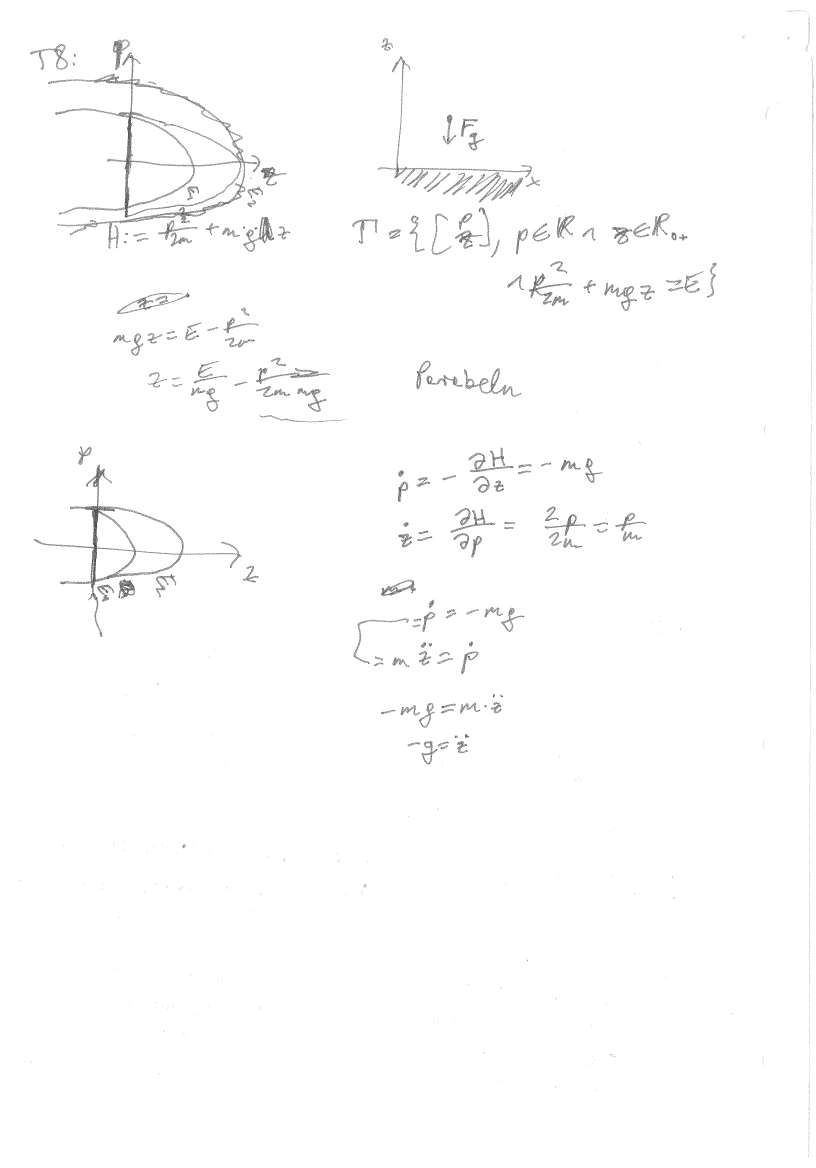 T8:
p
z
E₁ E₂
H := p²/2m + m·g·z
z
F_g
x
Γ = {[p z], p∈ℝ ∧ z∈ℝ₀₊
∧ p²/2m + mgz = E}
mgz = E - p²/2m
z = E/mg - p²/2m mg
Parabeln
p
z
E₁ E₂
ṗ = - ∂H/∂z = - mg
ż = ∂H/∂p = 2p/2m = p/m
= ṗ = - mg
= m z̈ = ṗ
- mg = m·z̈
- g = z̈